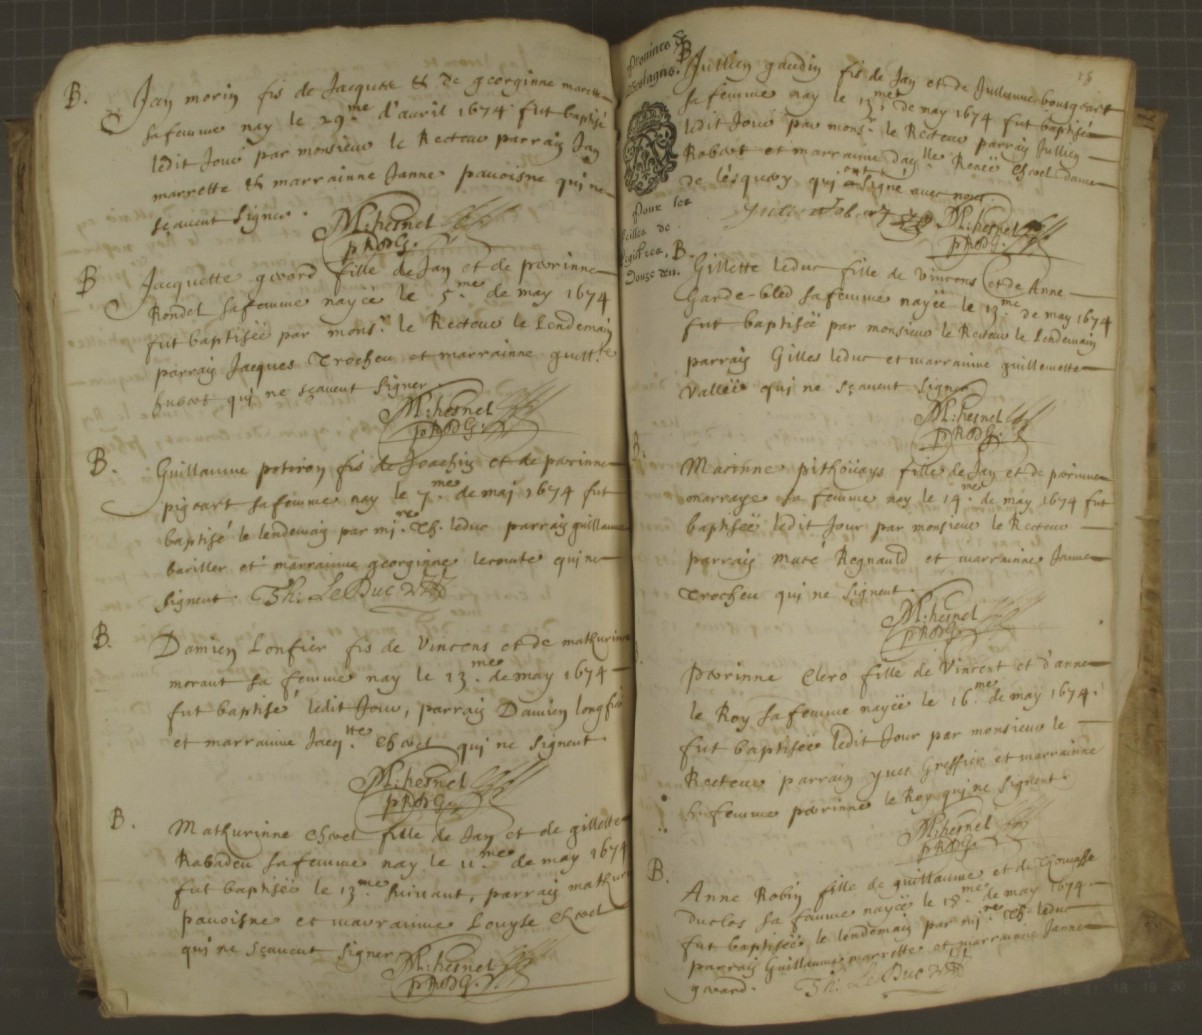 B. Jan morin fis de Jacques & de georginne
sa femme nay le 29.me d'avril 1674 fut baptisé
ledit Jour par monsieur le Recteur parrain Jan
marrette & marrainne Janne pavoisne qui ne
sçavent signer.
M: hesnel
B Jacquette gicard fille de Jan et de perrinne
Rondel sa femme nayée le 5.me de may 1674
fut baptisée par mons.r le Recteur le lendemain
parrain Jacques trocheu et marrainne guill.te
hubert qui ne sçavent signer.
M: hesnel
B. Guillaume potiron fis de Joachin et de perrinne
pigeart sa femme nay le 7.me de mai 1674 fut
baptisé le lendemain par mi.re Th. leduc parrain guillaume
bariller et marrainne georginne lecomte qui ne
signent. Th: Le Duc
B. Damien Lonfier fis de Vincens et de mathurinne
moraut sa femme nay le 13.me de may 1674
fut baptisé ledit Jour, parrain Damien longfier
et marrainne Jacq.tte Chevel qui ne signent
M: hesnel
B. Mathurinne Chevel fille de Jan et de gillette
Rabadeu sa femme nay le 11.me de may 1674
fut baptisée le 13.me suivant, parrain mathurin
pavoisne et marrainne Louyse Chevel
qui ne sçavent signer
M: hesnel
Province de
Bretagne.
Pour les
feilles de
Registres,
Douze den.
15
B Jullien gaudin fis de Jan et de Jullienne bousgeart
sa femme nay le 13.me de may 1674 fut baptisé
ledit Jour par mons.r le Recteur parrain Jullien
Robert et marrainne da.lle Renée Chevel dame
de lesquoy qui ont signé avec nous
M: hesnel
B. Gillette leduc fille de Vincens et de Anne
Garde-bled sa femme nayée le 13.me de may 1674
fut baptisée par monsieur le Recteur le lendemain
parrain Gilles leduc et marrainne guillemette
Vallée qui ne sçavent signer
M: hesnel
Marinne pithoüays fille de Jan et de perrinne
marraye sa femme nay le 14.me de may 1674 fut
baptisée ledit Jour par monsieur le Recteur
parrain Maté Regnauld et marrainne Janne
Trocheu qui ne signent.
M: hesnel
Perrinne Clero fille de Vincent et d'anne
le Roy sa femme nayée le 16.me de may 1674.
fut baptisée ledit Jour par monsieur le
Recteur parrain yves Greffier et marrainne
sa femme perrinne le Roy qui ne signent
M: hesnel
B. Anne Robin fille de guillaume et de
duclos sa femme nayée le 18.me de may 1674
fut baptisée le lendemain par mi.re Th. leduc
parrain Guillaume marrette et marrainne Janne
gicard. Th: Le Duc